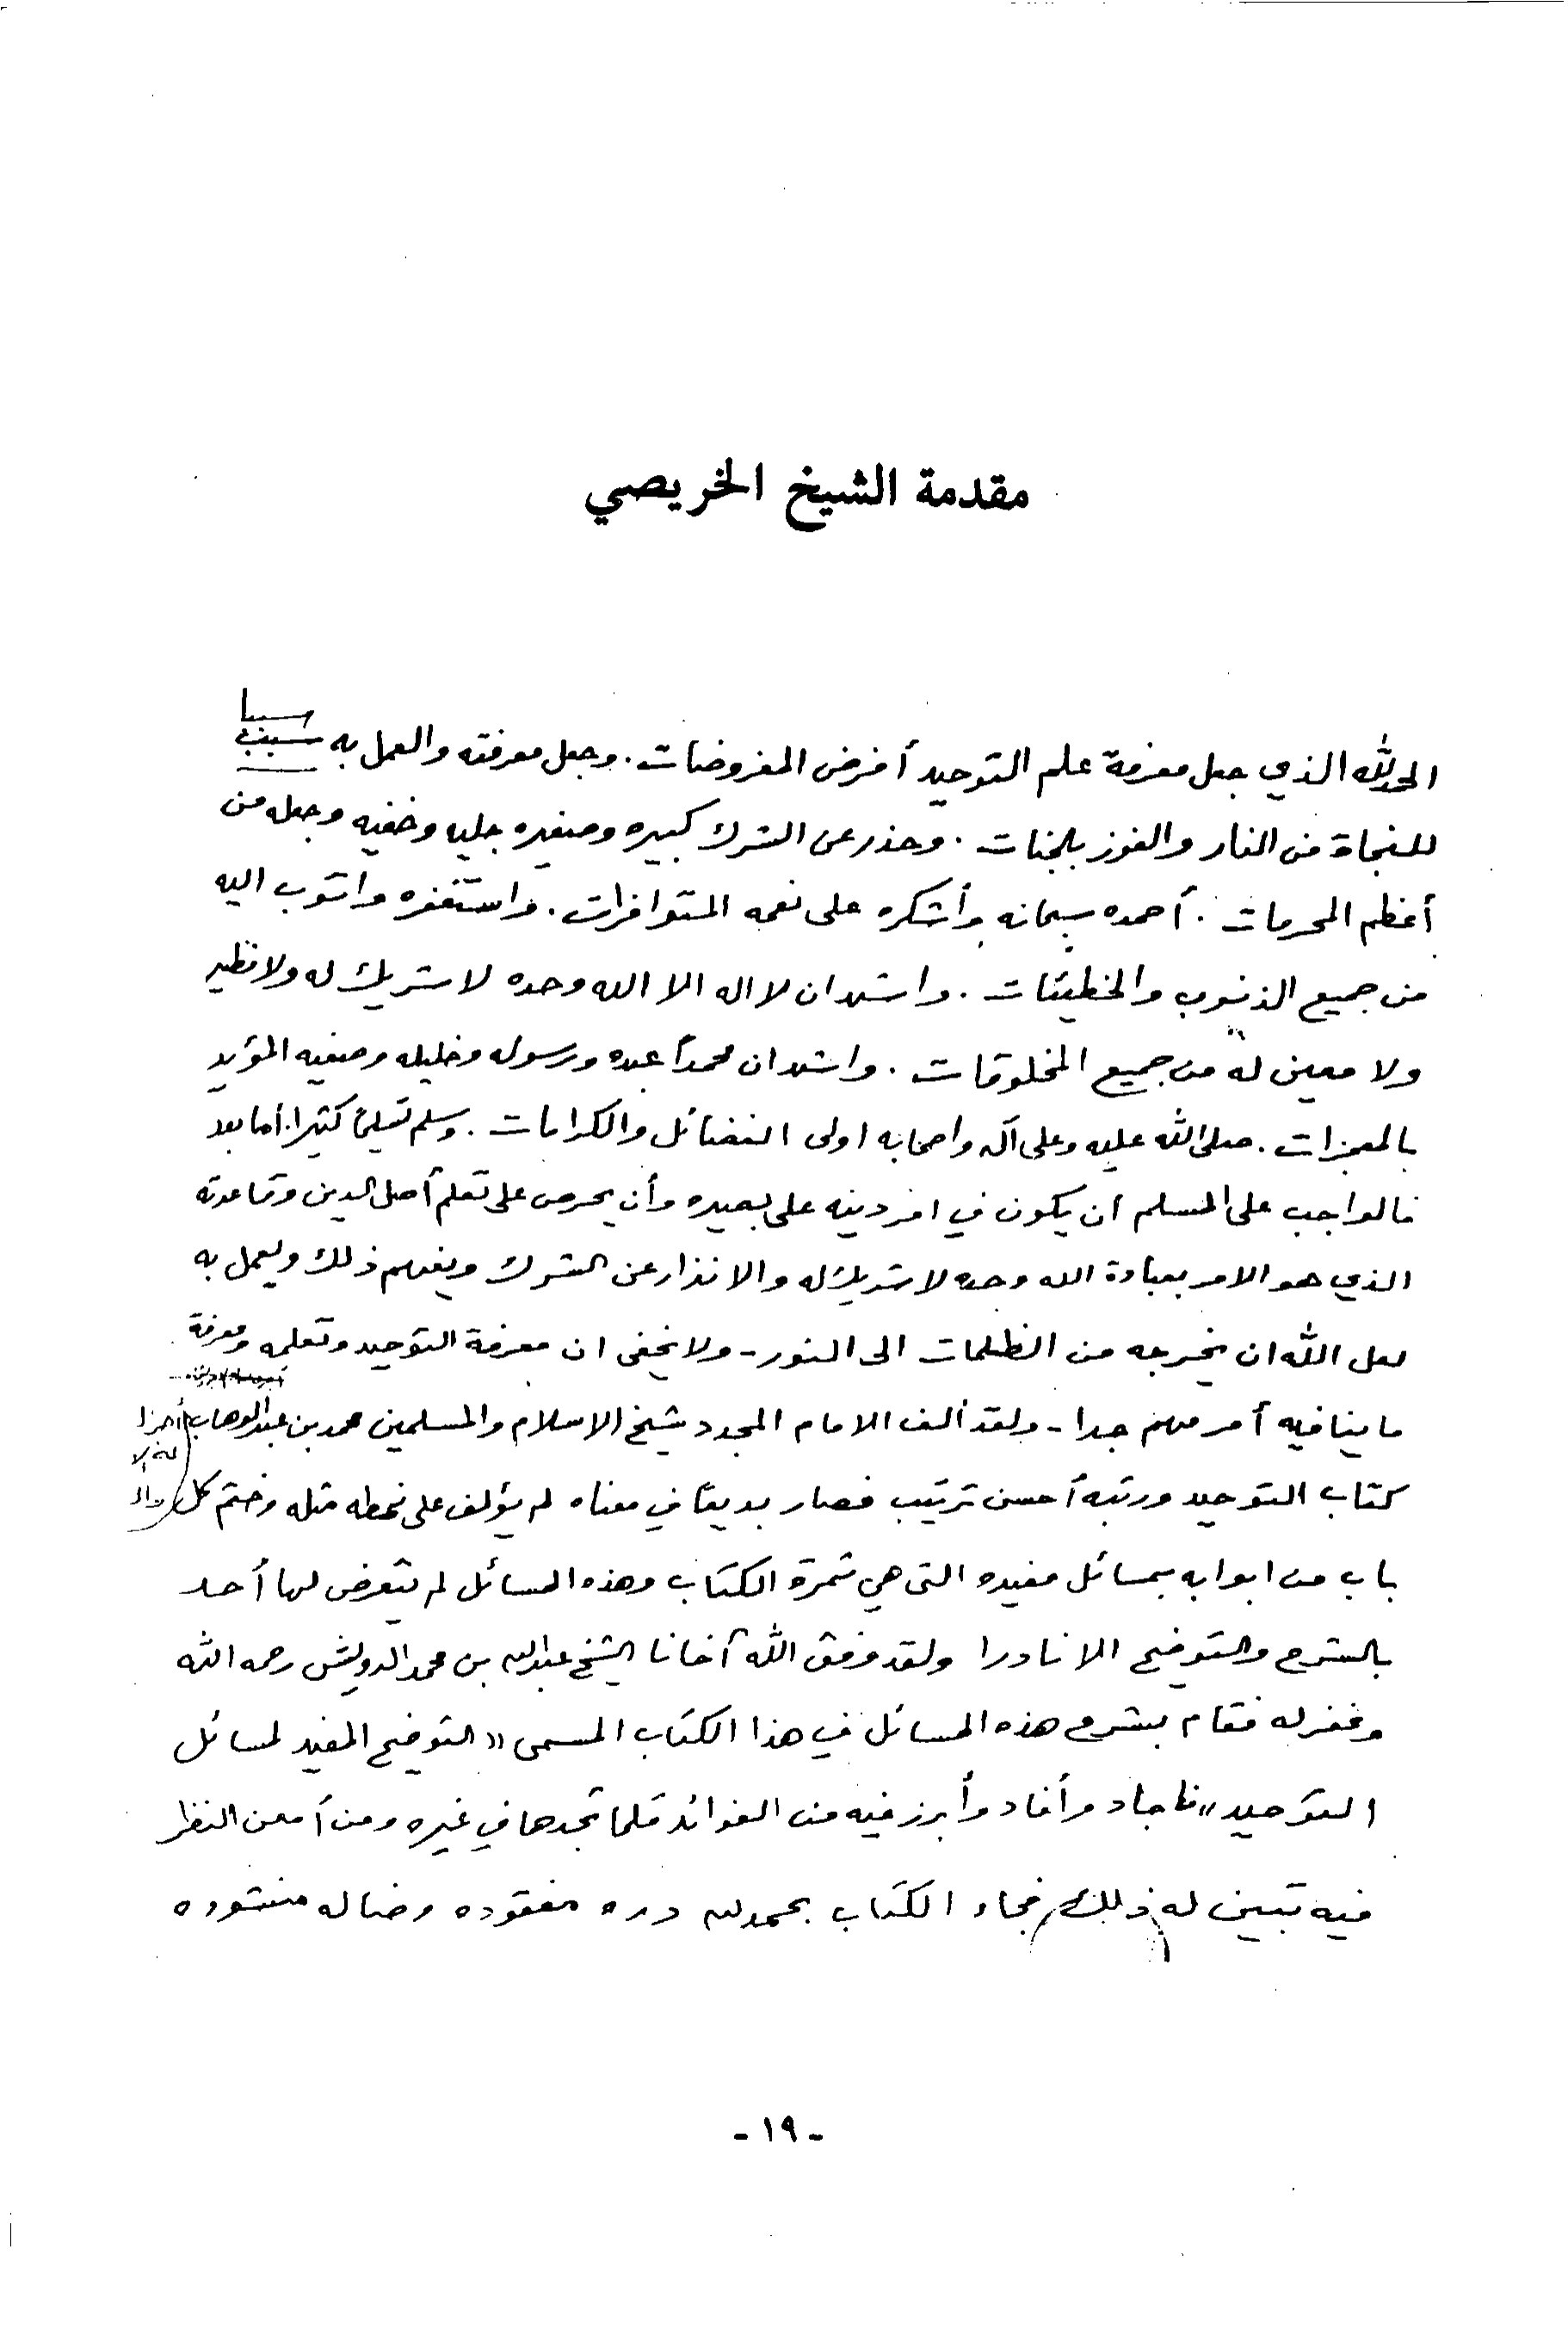 مقدمة الشيخ الخريصي
الحمد لله الذي جعل معرفة علم التوحيد أفرض المفروضات. وجعل معرفته والعمل به سببا
للنجاة من النار والفوز بالجنات. وحذر عن الشرك كبيره وصغيره جليه وخفيه وجعله من
أعظم المحرمات. أحمده سبحانه وأشكره على نعمه المتوافرات. واستغفره واتوب اليه
من جميع الذنوب والخطيئات. واشهد ان لا اله الا الله وحده لا شريك له ولا نظير
ولا معين له من جميع المخلوقات. واشهد ان محمداً عبده ورسوله وخليله وصفيه المؤيد
بالمعجزات. صلى الله عليه وعلى آله واصحابه اولى الفضائل والكرامات. وسلم تسليماً كثيرا. أما بعد
فالواجب على المسلم ان يكون في امر دينه على بصيره وأن يحرص على تعلم أصل الدين وقاعدته
الذي هو الامر بعبادة الله وحده لا شريك له والانذار عن الشرك ويفهم ذلك ويعمل به
لعل الله ان يخرجه من الظلمات الى النور - ولا يخفى ان معرفة التوحيد وتعلمه ومعرفة
ما ينافيه أمر مهم جدا - ولقد ألف الامام المجدد شيخ الاسلام والمسلمين محمد بن عبد الوهاب
كتاب التوحيد ورتبه أحسن ترتيب فصار بديعاً في معناه لم يؤلف على نمطه مثله وختم كل
باب من ابوابه بمسائل مفيده التى هي ثمرة الكتاب وهذه المسائل لم يتعرض لها أحد
بالشرح والتوضيح الا نادرا ولقد وفق الله أخانا الشيخ عبد الله بن محمد الدويش رحمه الله
وغفر له فقام بشرح هذه المسائل في هذا الكتاب المسمى «التوضيح المفيد لمسائل
التوحيد» فاجاد وأفاد وأبرز فيه من الفوائد قلما تجدها في غيره ومن أمعن النظر
فيه تبين له ذلك فجاء الكتاب بحمد لله دره مفقوده وضاله منشوده
- ١٩ -